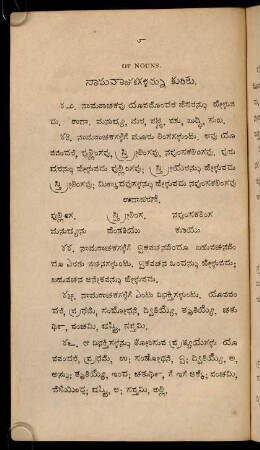 ೮
OF NOUNS.
ನಾಮವಾಚಕಗಳನ್ನು ಕುರಿತು.
೬೨. ನಾಮವಾಚಕವು ಯಾವದೊಂದರ ಹೆಸರನ್ನು ಹೇಳುವ
ದು. ಉದಾ. ಮನುಷ್ಯ, ಮರ, ಪಕ್ಷಿ, ಪಶು, ಬುದ್ಧಿ, ಸುಖ.
೬೩. ನಾಮವಾಚಕಗಳಿಗೆ ಮೂರು ಲಿಂಗಗಳುಂಟು. ಅವು ಯಾ
ವವಂದರೆ, ಪುಲ್ಲಿಂಗವು, ಸ್ತ್ರೀಲಿಂಗವು, ನಪುಂಸಕಲಿಂಗವು. ಪುರು
ಷರನ್ನು ಹೇಳುವದು ಪುಲ್ಲಿಂಗವು; ಸ್ತ್ರೀಯರನ್ನು ಹೇಳುವದು
ಸ್ತ್ರೀಲಿಂಗವು; ಮಿಕ್ಕಾದವುಗಳನ್ನು ಹೇಳುವದು ನಪುಂಸಕಲಿಂಗವು
ಉದಾಹರಣೆ.
ಪುಲ್ಲಿಂಗ, ಸ್ತ್ರೀಲಿಂಗ, ನಪುಂಸಕಲಿಂಗ
ಮನುಷ್ಯನು ಹೆಂಗಸು ಕುರಿಯು
೬೪. ನಾಮವಾಚಕಗಳಿಗೆ ಏಕವಚನವೆಂದೂ ಬಹುವಚನವೆಂ
ದೂ ಎರಡು ವಚನಗಳುಂಟು. ಏಕವಚನ ಒಂದನ್ನು ಹೇಳುವದು;
ಬಹುವಚನ ಅನೇಕವನ್ನು ಹೇಳುವದು.
೬೫. ನಾಮವಾಚಕಗಳಿಗೆ ಎಂಟು ವಿಭಕ್ತಿಗಳುಂಟು. ಯಾವವಂ
ದರೆ, ಪ್ರಥಮೆ, ಸಂಬೋಧನೆ, ದ್ವಿತಿಯ್ಯೆ, ತೃತಿಯ್ಯೆ, ಚತು
ರ್ಥಿ, ಪಂಚಮಿ, ಷಷ್ಟಿ, ಸಪ್ತಮಿ.
೬೬. ಆ ವಿಭಕ್ತಿಗಳನ್ನು ತೋರಿಸುವ ಪ್ರತ್ಯಯಗಳು ಯಾ
ವವಂದರೆ, ಪ್ರಥಮೆ, ಉ; ಸಂಬೋಧನೆ, ಏ; ದ್ವಿತಿಯ್ಯೆ, ಅ,
ಅನ್ನು; ತೃತಿಯ್ಯೆ, ಇಂದ; ಚತುರ್ಥಿ, ಗೆ ಇಗೆ ಅಕ್ಕೆ; ಪಂಚಮಿ,
ದೆಸೆಯಿಂದ; ಷಷ್ಟಿ, ಅ; ಸಪ್ತಮಿ, ಅಲ್ಲಿ.